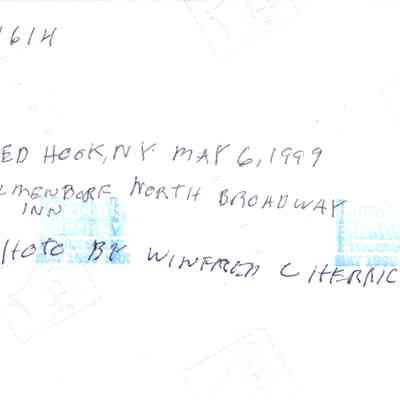 1614
ED HOOK, NY MAY 6, 1999
LMENDORF NORTH BROADWAY
INN
HOTO BY WINFRED C HERRIC